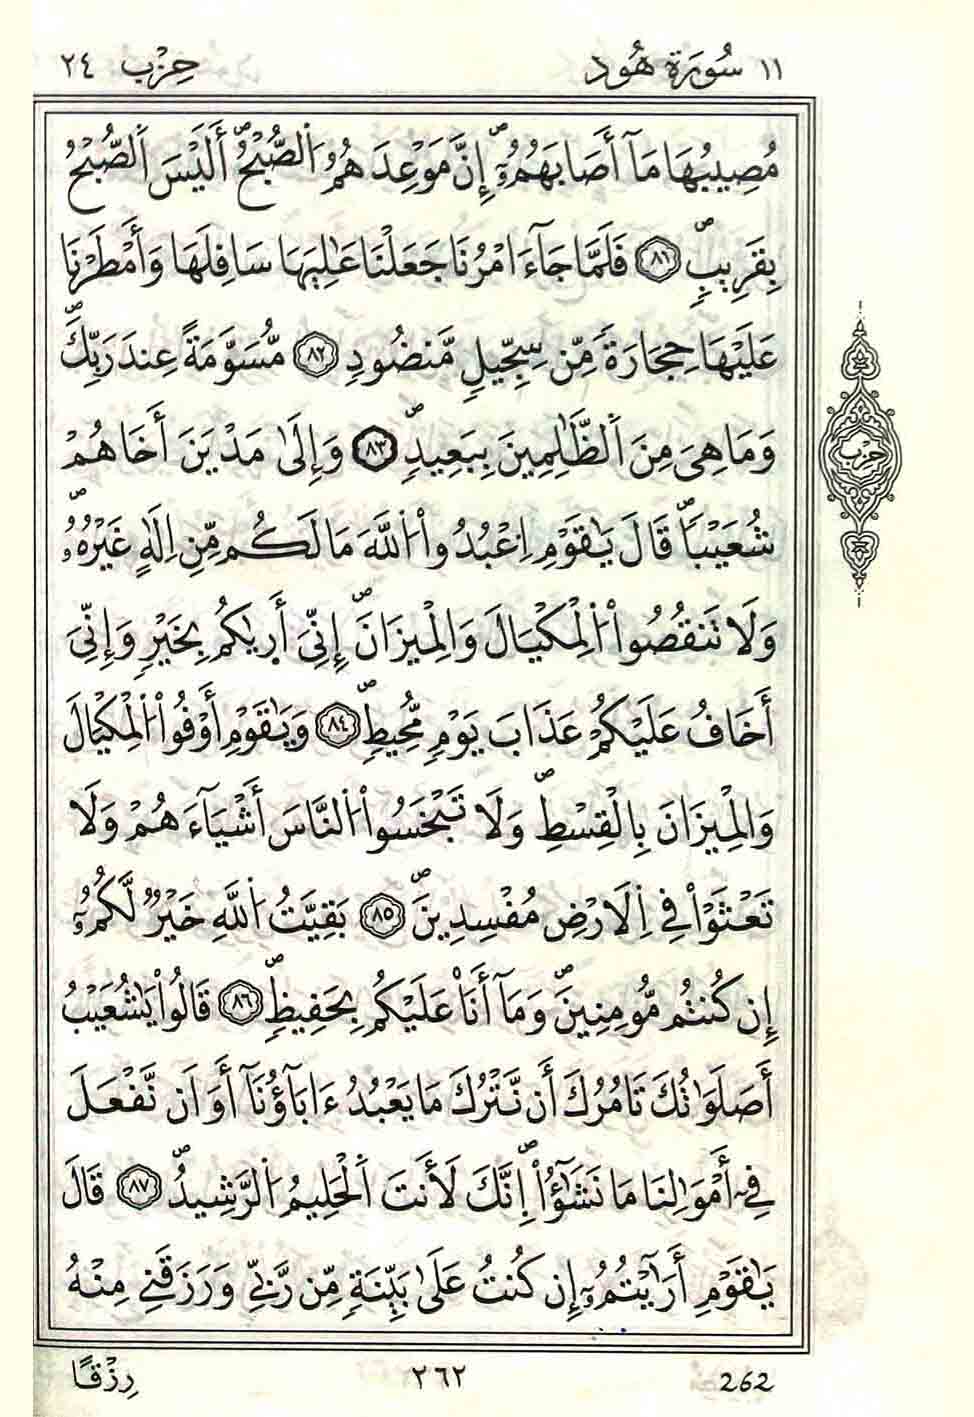 ١١ سُورَةُ هُود حِزْب ٢٤
مُصِيبُهَا مَآ أَصَابَهُمُۥٓۖ إِنَّ مَوْعِدَهُمُ اُ۬لصُّبْحُۖ أَلَيْسَ اَ۬لصُّبْحُ
بِقَرِيبٖۖ ٨١ فَلَمَّا جَآءَ امْرُنَا جَعَلْنَا عَٰلِيَهَا سَافِلَهَا وَأَمْطَرْنَا
عَلَيْهَا حِجَارَةٗ مِّن سِجِّيلٖ مَّنضُودٖ ٨٢ مُّسَوَّمَةً عِندَ رَبِّكَۖ
وَمَا هِيَ مِنَ اَ۬لظَّٰلِمِينَ بِبَعِيدٖۖ ٨٣ وَإِلَىٰ مَدْيَنَ أَخَاهُمْ
شُعَيْباٗۖ قَالَ يَٰقَوْمِ اِعْبُدُواْ اُ۬للَّهَ مَا لَكُم مِّنِ اِلَٰهٍ غَيْرُهُۥ
وَلَا تَنقُصُواْ اُ۬لْمِكْيَالَ وَالْمِيزَانَۖ إِنِّيَ أَر۪يٰكُم بِخَيْرٖ وَإِنِّيَ
أَخَافُ عَلَيْكُمْ عَذَابَ يَوْمٖ مُّحِيطٖۖ ٨٤ وَيَٰقَوْمِ أَوْفُواْ اُ۬لْمِكْيَالَ
وَالْمِيزَانَ بِالْقِسْطِۖ وَلَا تَبْخَسُواْ اُ۬لنَّاسَ أَشْيَآءَهُمْ وَلَا
تَعْثَوْاْ فِي اِ۬لَارْضِ مُفْسِدِينَۖ ٨٥ بَقِيَّتُ اُ۬للَّهِ خَيْرٞ لَّكُمُۥٓ
إِن كُنتُم مُّومِنِينَۖ وَمَآ أَنَا۠ عَلَيْكُم بِحَفِيظٖۖ ٨٦ قَالُواْ يَٰشُعَيْبُ
أَصَلَوَٰتُكَ تَامُرُكَ أَن نَّتْرُكَ مَا يَعْبُدُ ءَابَآؤُنَآ أَوَ اَن نَّفْعَلَ
فِےٓ أَمْوَٰلِنَا مَا نَشَٰٓؤُاْۖ اِنَّكَ لَأَنتَ اَ۬لْحَلِيمُ اُ۬لرَّشِيدُۖ ٨٧ قَالَ
يَٰقَوْمِ أَرَٰٓيْتُمُۥٓ إِن كُنتُ عَلَىٰ بَيِّنَةٖ مِّن رَّبِّے وَرَزَقَنِے مِنْهُ
حِزْب
رِزْقًا ٢٦٢ 262